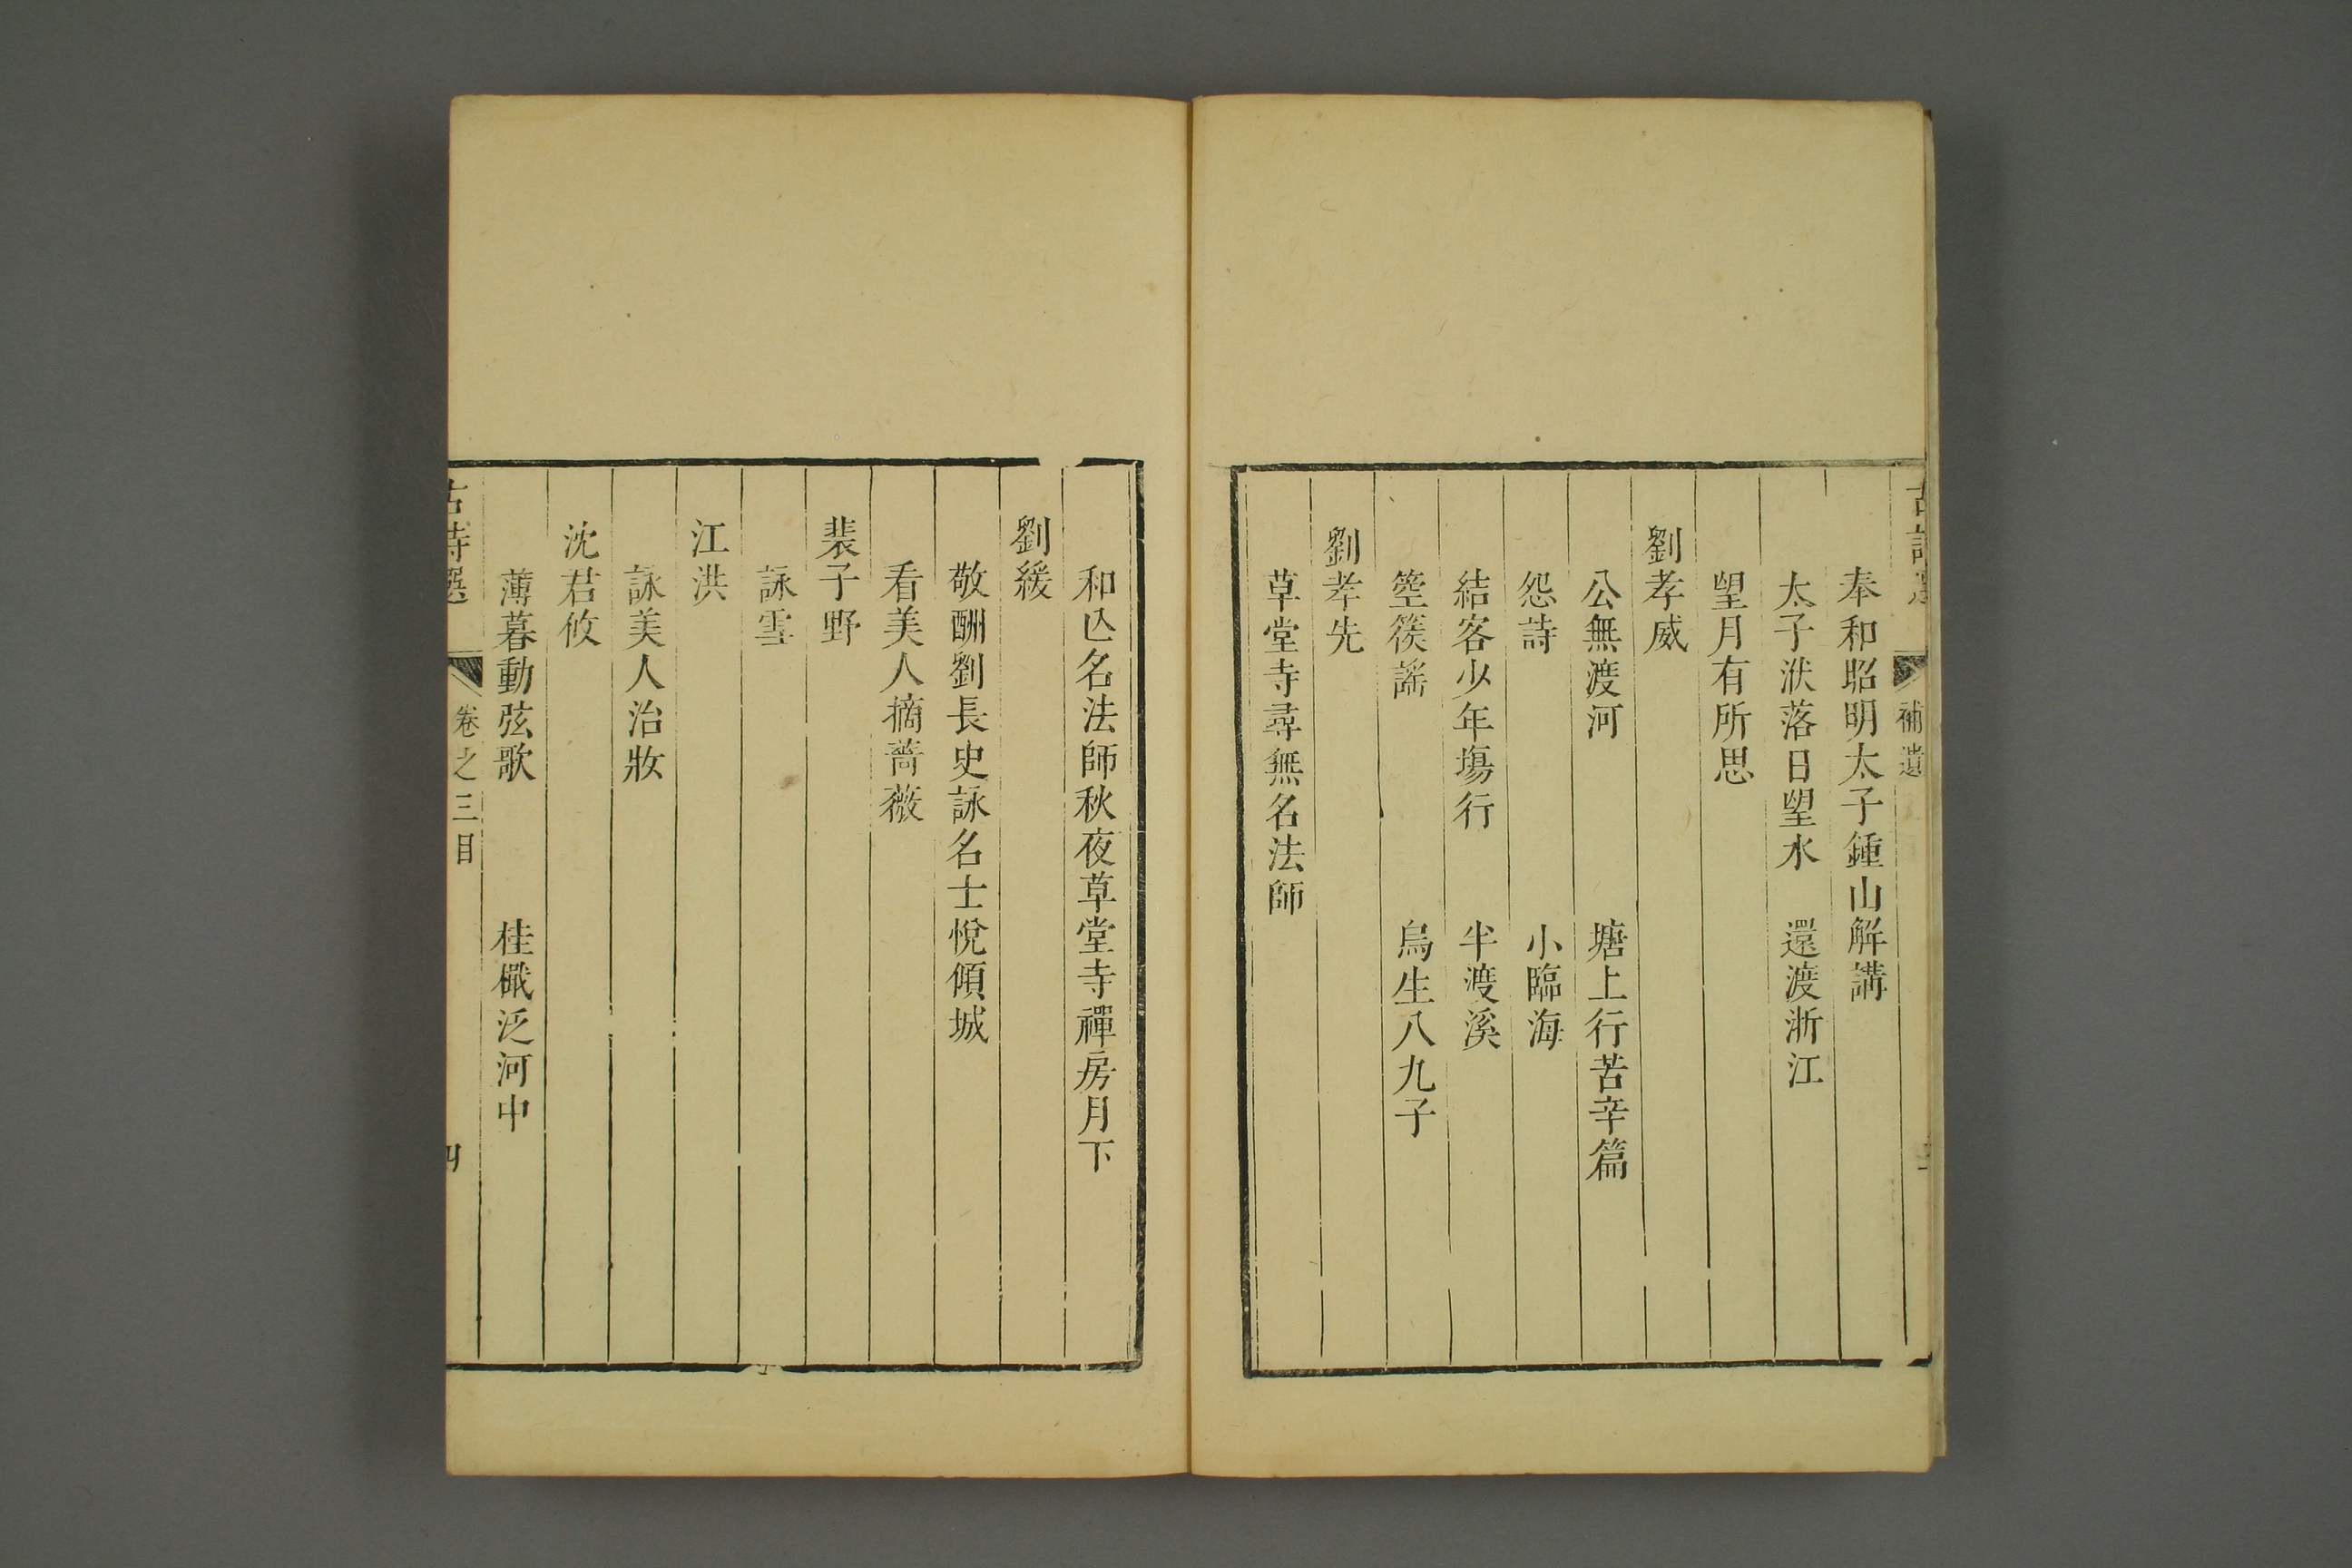 補遺
奉和昭明太子鍾山解講
太子洑落日望水　還渡浙江
望月有所思
劉孝威
公無渡河　塘上行苦辛篇
怨詩　小臨海
結客少年塲行　半渡溪
箜篌謠　烏生八九子
劉孝先
草堂寺尋無名法師
和亾名法師秋夜草堂寺禪房月下
劉緩
敬酬劉長史詠名士悅傾城
看美人摘薔薇
裴子野
詠雪
江洪
詠美人治妝
沈君攸
薄暮動弦歌　桂檝泛河中
古詩選　卷之三目　四